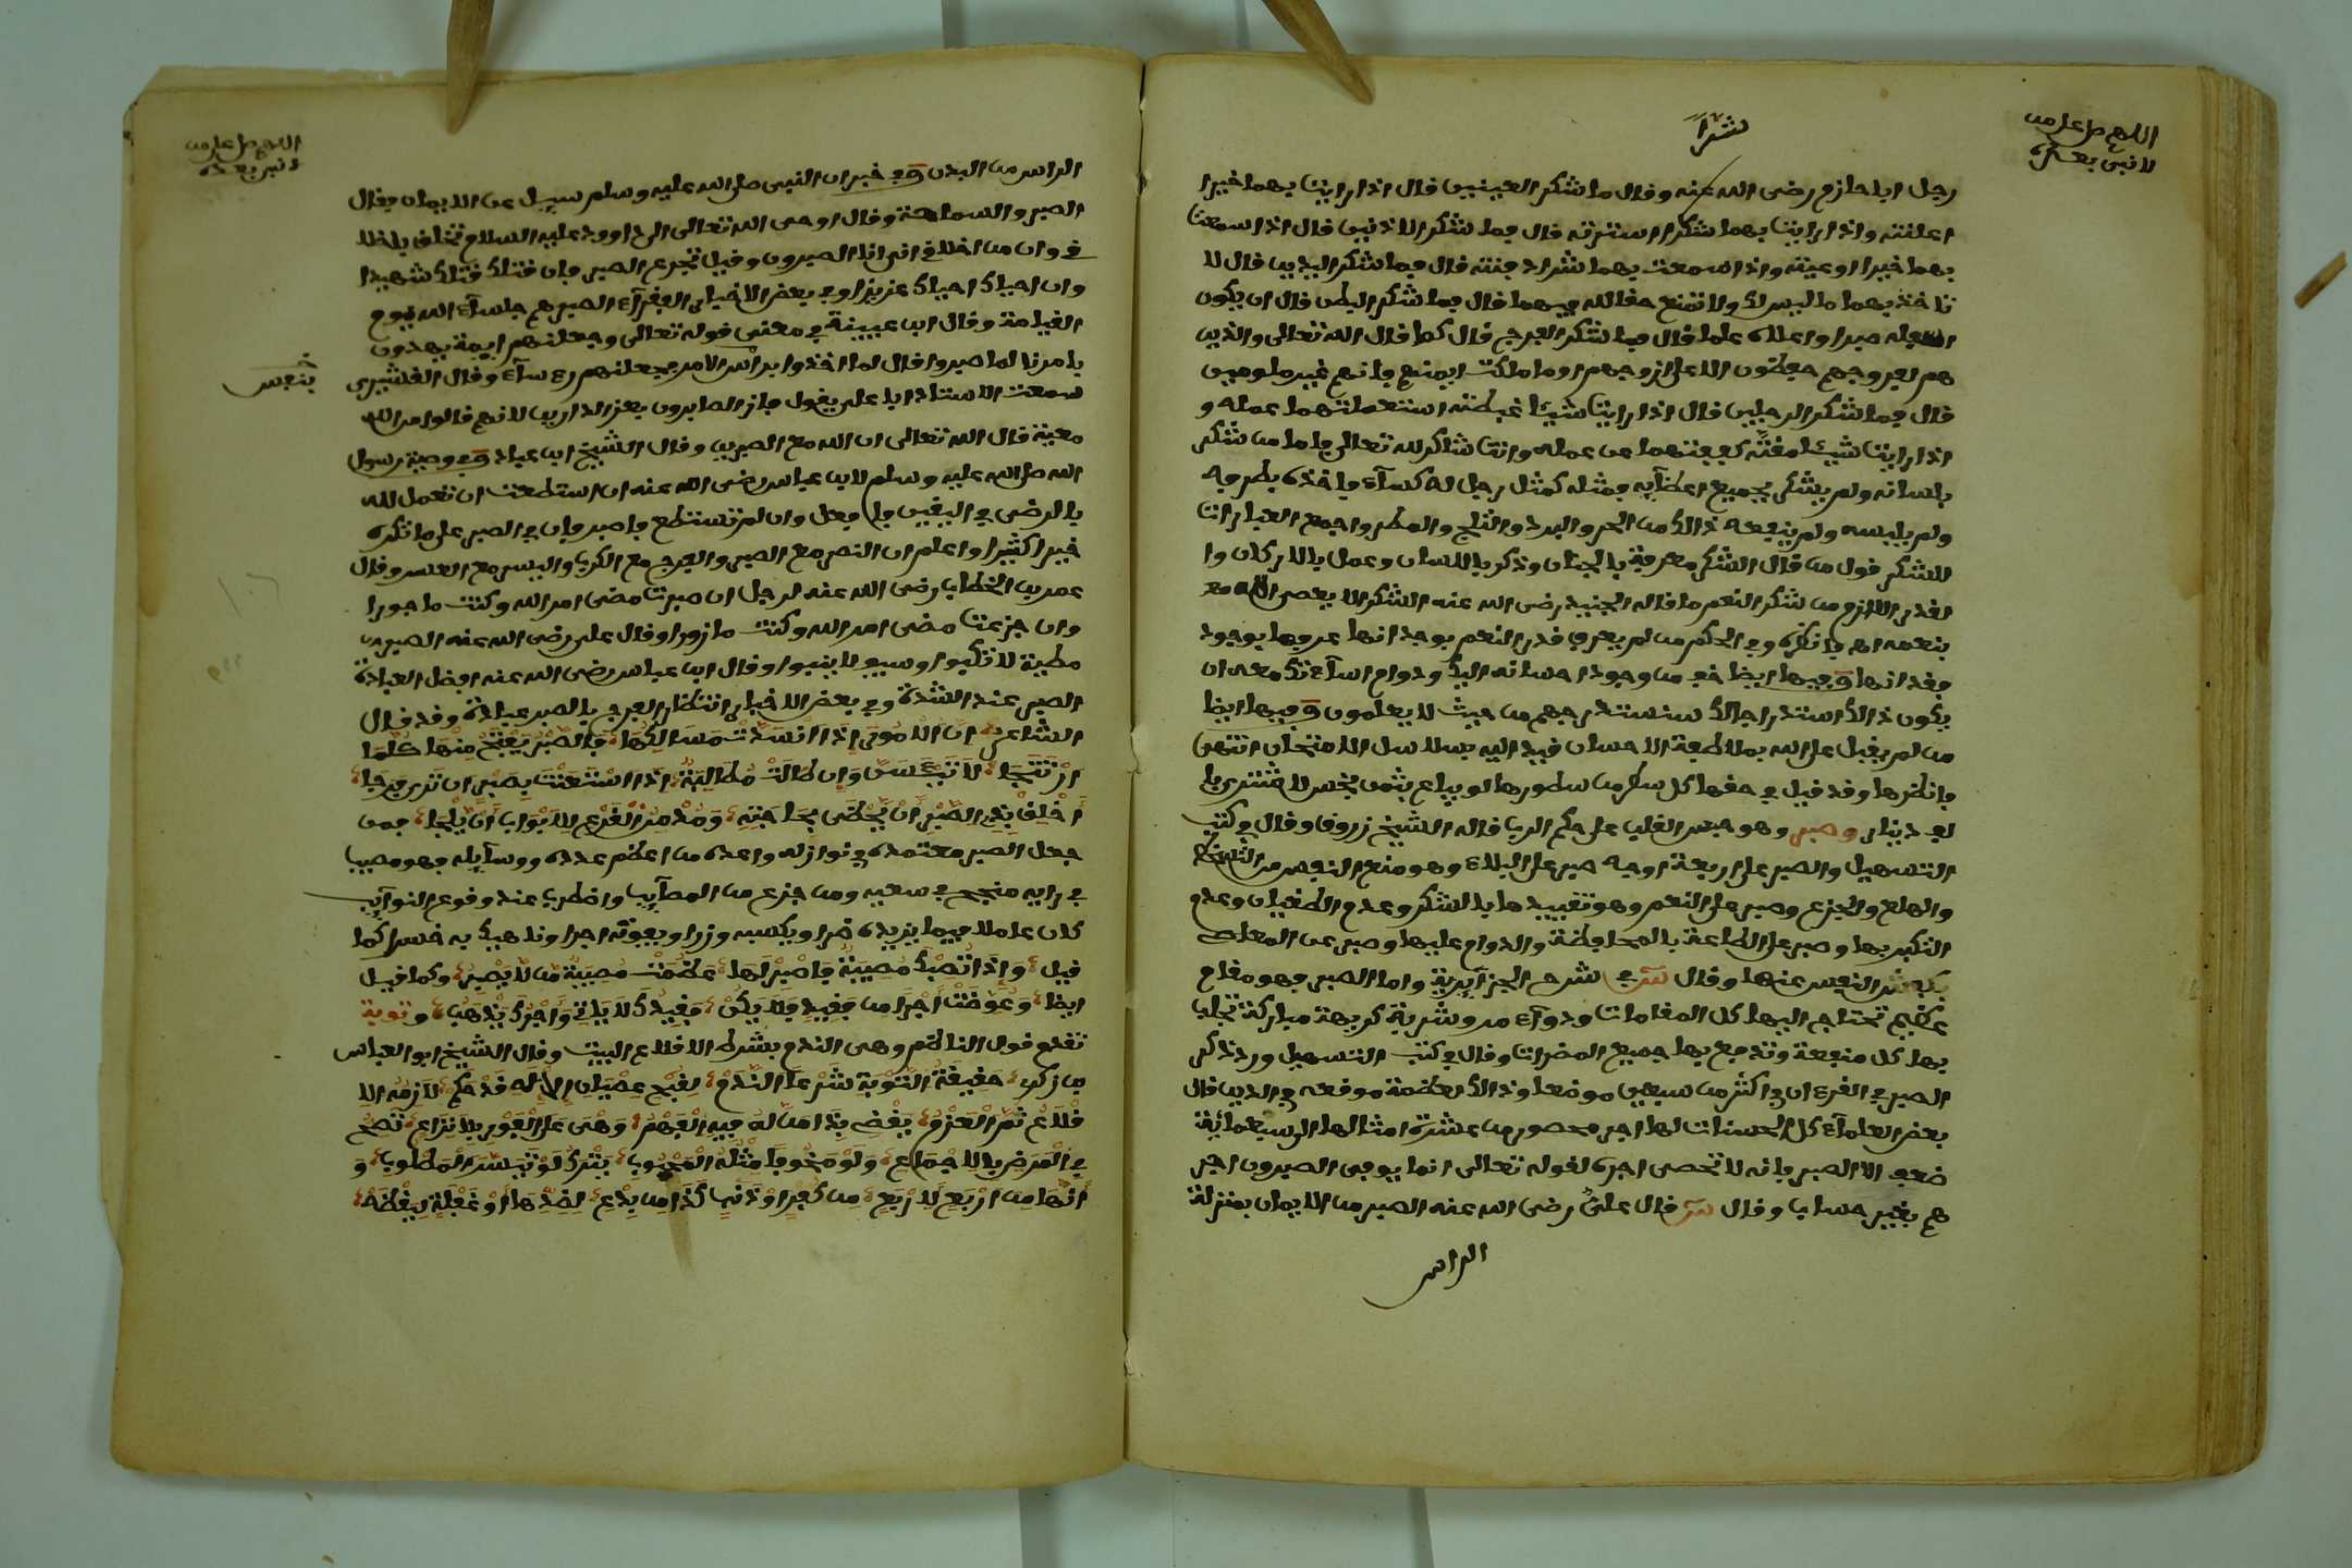 اللهم صل على من
لا نبي بعده
شرا
رجل ابا حازم رضى الله عنه وقال ما شكر العينين قال اذا رايت بهما خيرا
اعلنته واذا رايت بهما شرا سترته قال فما شكر الاذنين قال اذا سمعت
بهما خيرا وعيته واذا سمعت بهما شرا دفنته قال فما شكر اليدين قال لا
تاخذ بهما ما ليس لك ولا تمنع حقا لله فيهما قال فما شكر البطن قال ان يكون
اسفله صبرا واعلاه علما قال فما شكر الفرج قال كما قال الله تعالى والذين
هم لفروجهم حفظون الا على ازوجهم او ما ملكت ايمنهم فانهم غير ملومين
قال فما شكر الرجلين قال اذا رايت شيئا غبطته استعملتهما عمله و
اذا رايت شيئا مقته كففتهما عن عمله وانت شاكر لله تعالى فاما من شكر
بلسانه ولم يشكر بجميع اعضآيه فمثله كمثل رجل له كسآء فاخذه بطرفه
ولم يلبسه ولم ينفعه ذالك من الحر والبرد والثلج والمطر واجمع العبارات
للشكر قول من قال الشكر معرفة بالجنان وذكر باللسان وعمل بالاركان وا
لقدر اللازم من شكر النعم ما قاله الجنيد رضى الله عنه الشكر الا يعصى الله مع
بنعمه اه فانظره وفي الحكم من لم يعرف قدر النعم بوجدانها عرفها بوجود
فقدانها وفيها ايضا خف من وجود احسانه اليك ودوام اسآءتك معه ان
يكون ذالك استدراجا لك سنستدرجهم من حيث لا يعلمون وفيها ايضا
من لم يقبل على الله بملاطفة الاحسان قيد اليه بسلاسل الامتحان انتهى
فانظرها وقد قيل في حقها كل سطر من سطورها لو يباع بثمن بخس لاشترى با
لف دينار وصبر وهو حبس القلب على حكم الرب قاله الشيخ زروق وقال في كتب
التسهيل والصبر على اربعة اوجه صبر على البلاء وهو منع النفس من التسخط
والهلع والجزع وصبر على النعم وهو تقييدها بالشكر وعدم الطغيان وعدم
التكبر بها وصبر على الطاعة بالمحافظة والدوام عليها وصبر عن المعاصى
بكف النفس عنها وقال في شرح الجزآيرية واما الصبر فهو مقام
عظيم تحتاج اليها كل المقامات ودوآء مر وشربة كريهة مباركة تجلب
بها كل منفعة وتدفع بها جميع المضرات وقال في كتب التسهيل ورد ذكر
الصبر في القرءان في اكثر من سبعين موضعا وذالك لعظمة موقعه في الدين قال
بعض العلمآء كل الحسنات لها اجر محصور من عشرة امثالها الى سبعمائة
ضعف الا الصبر فانه لا تحصى اجره لقوله تعالى انما يوفى الصبرون اجر
هم بغير حساب وقال قال على رضى الله عنه الصبر من الايمان بمنزلة
الراس
اللهم صل على من
لا نبي بعده
الراس من البدن وفي خبر ان النبى صلى الله عليه وسلم سيل عن الايمان فقال
الصبر والسماحة وقال اوحى الله تعالى الى داوود عليه السلام تخلق باخلا
فى وان من اخلاقى انى انا الصبور وقيل تجرع الصبر فان قتلك قتلك شهيدا
وان احياك احياك عزيزا وفي بعض الاخبار الفقرآء الصبر هم جلسآء الله يوم
القيامة وقال ابن عيينة في معنى قوله تعالى وجعلنهم ايمة يهدون
بامرنا لما صبروا قال لما اخذوا براس الامر فجعلنهم رءسآء وقال القشيرى
سمعت الاستاذ ابا على يقول فاز الصابرون بعز الدارين لانهم نالوا من الله
معية قال الله تعالى ان الله مع الصبرين وقال الشيخ ابن عباد وفي وصية رسول
الله صلى الله عليه وسلم لابن عباس رضى الله عنه ان استطعت ان تعمل لله
بالرضى في اليقين فا فعل وان لم تستطع فاصبر فان في الصبر على ما تكره
خيرا كثيرا واعلم ان النصر مع الصبر والفرج مع الكرب واليسر مع العسر وقال
عمر بن الخطاب رضى الله عنه لرجل ان صبرت مضى امر الله وكنت ماجورا
وان جزعت مضى امر الله وكنت مازورا وقال على رضى الله عنه الصبر
مطية لا تكبوا وسيف لا ينبوا وقال ابن عباس رضى الله عنه افضل العبادة
الصبر عند الشدة وفي بعض الاخبار انتظار الفرج بالصبر عبادة وقد قال
الشاعر ان الامور اذا انسدت مسالكها فالصبر يفتح منها كلما
ارتتجا لا تيئسن وان طالت مطالبة اذا استعنت بصبر ان ترى فرجا
أخلق بذى الصبر أن يحظى بحاجته ومدمن القرع للابواب أن يلجا فمن
جعل الصبر معتمده في نوازله واعده من اعظم عدده ووسآيله فهو مصيب
في رايه منجح في سعيه ومن جزع من المصآيب واضطرب عند وقوع النوآيب
كان عاملا فيما يزيده ضرا ويكسبه وزرا ويفوته اجرا وناهيك به خسرا كما
قيل وإذا تصبك مصيبة فاصبر لها عظمت مصيبة من لا يصبر وكما قيل
ايضا وعوضت أجرا من فقيد فلا يكن فقيدك لا ياتى وأجرك يذهب وتوبة
تقدم قول الناظم وهى الندم بشرط الاقلاع البيت وقال الشيخ ابو العباس
بن زكرى حقيقة التوبة شرعا الندم لقبح عصيان الإله قد حكم لازمه الا
قلاع ثم العزم بغض بذا من له فيه الفهم وهى على الفور بلا نزاع تصح
في المرض بالاجماع ولو مخوفا مثله المحبوب بترك لو تيسر المطلوب و
أنها من اربع لاربع من كفر او ذنب كذا من بدع لضدها أو غفلة ليقظه
ينفس
١٠٦